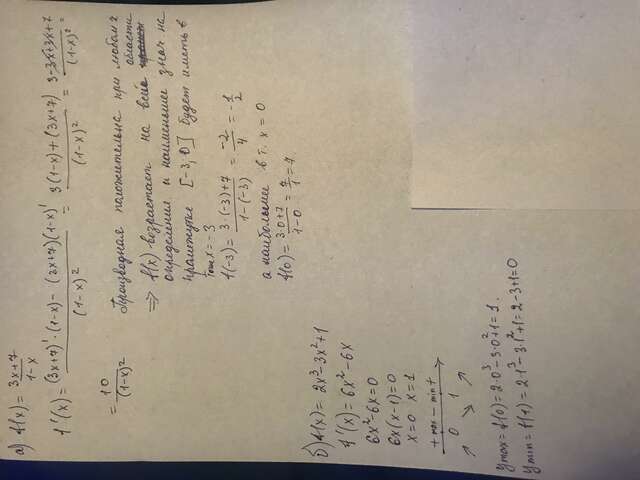 а) f(x) = 3x+7 / 1-x
f'(x) = (3x+7)'·(1-x) - (3x+7)(1-x)' / (1-x)² = 3(1-x)+(3x+7) / (1-x)² = 3-3x+3x+7 / (1-x)² =
= 10 / (1-x)²
Производная положительна при любом x
⇒ f(x) возрастает на всей области
определения и наименьшее знач на
промежутке [-3;0] будет иметь в
x=-3
f(-3) = 3·(-3)+7 / 1-(-3) = -2/4 = -1/2
а наибольшее в т. x=0
f(0) = 3·0+7 / 1-0 = 7/1 = 7.
б) f(x) = 2x³-3x²+1
f'(x) = 6x²-6x
6x²-6x=0
6x(x-1)=0
x=0 x=1
+ max - min +
0 1
↗ ↘ ↗
ymax = f(0) = 2·0³-3·0²+1=1.
ymin = f(1) = 2·1³-3·1²+1=2-3+1=0